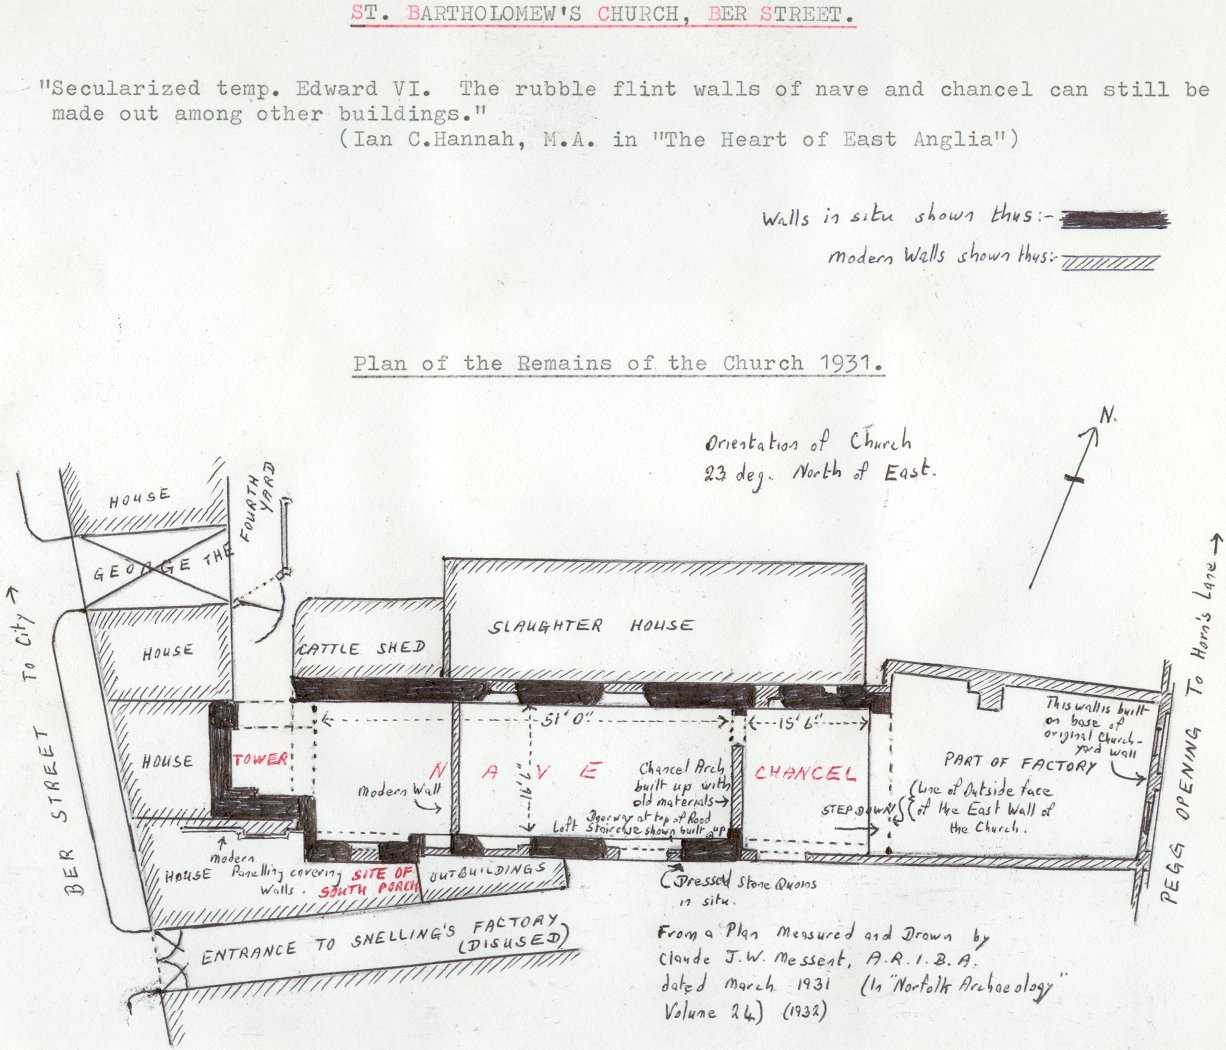 ST. BARTHOLOMEW'S CHURCH, BER STREET.
"Secularized temp. Edward VI. The rubble flint walls of nave and chancel can still be
made out among other buildings."
(Ian C.Hannah, M.A. in "The Heart of East Anglia")
Walls in situ shown thus:-
Modern Walls shown thus:-
Plan of the Remains of the Church 1931.
Orientation of Church
23 deg. North of East.
N.
HOUSE
GEORGE THE FOURTH
YARD
TO City →
HOUSE
CATTLE SHED
SLAUGHTER HOUSE
To Horn's Lane →
PEGG OPENING
BER STREET
HOUSE
TOWER
51' 0"
NAVE
Modern Wall
Chancel Arch
built up with
old materials→
Doorway at top of Rood
Loft Staircase shown built up
15' 6"
CHANCEL
STEP DOWN
This wall is built
on base of
original Church-
yard wall
PART OF FACTORY
Line of Outside face
of the East Wall of
the Church.
HOUSE
Modern
Panelling covering
Walls.
SITE OF
SOUTH PORCH
OUTBUILDINGS
Dressed Stone Quoins
in situ.
ENTRANCE TO SNELLING'S FACTORY
(DISUSED)
From a Plan Measured and Drawn by
Claude J.W. Messent, A.R.I.B.A.
dated March 1931 (In "Norfolk Archaeology"
Volume 24) (1932)